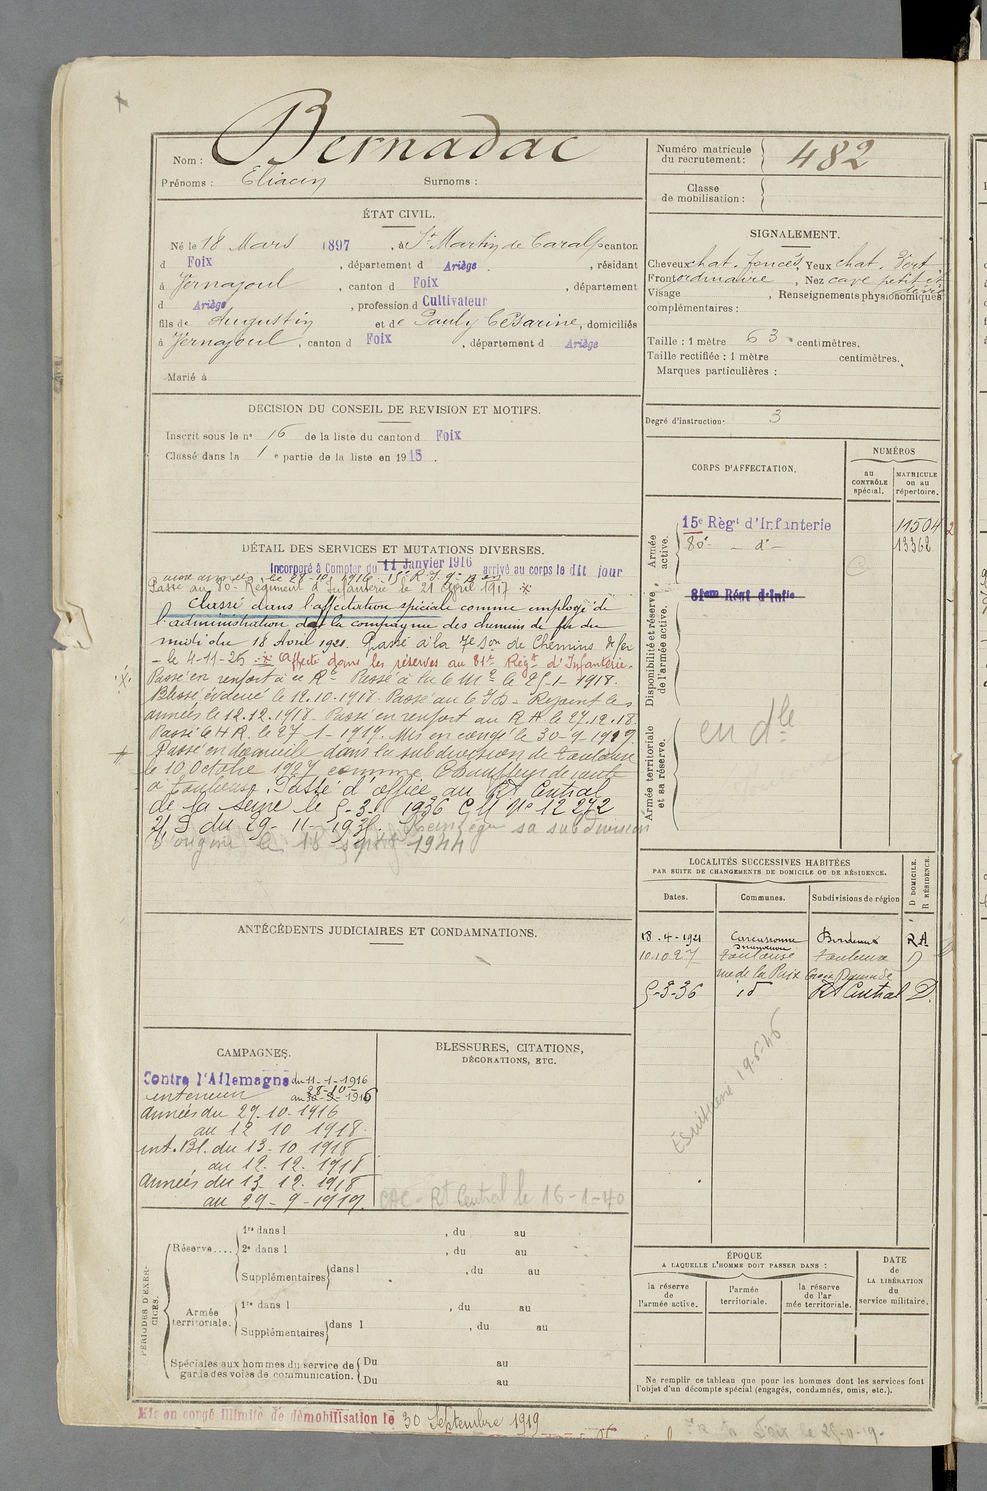 Nom : Bernadac
Prénoms : Eliacin Surnoms :
ÉTAT CIVIL.
Né le 18 Mars 1897, à St Martin de Caralp canton
d Foix, département d Ariège, résidant
à Vernajoul, canton d Foix, département
d Ariège, profession d Cultivateur
fils de Augustin et de Pauly Césarine, domiciliés
à Vernajoul, canton d Foix, département d Ariège
Marié à
DECISION DU CONSEIL DE REVISION ET MOTIFS.
Inscrit sous le n° 16 de la liste du canton d Foix
Classé dans la 1e partie de la liste en 1915.
DÉTAIL DES SERVICES ET MUTATIONS DIVERSES.
Incorporé à Compter du 11 Janvier 1916 arrivé au corps le dit jour
aux armées le 28-10-1916 15e R.I.
Passé au 80e Régiment d'Infanterie le 21 Avril 1917 X
Classé dans l'affectation spéciale comme employé de
l'administration de la compagnie des chemins de fer du
midi du 18 Avril 1921. Passé à la 7e Son de Chemins de fer
le 4-11-25 X Affecté dans les réserves au 81e Régt d'Infanterie.
X Passé en renfort à ce Rt Passé à la 6 Me le 25-1-1918.
Blessé évacué le 12.10.1918. Passé au 6 J D - Rejoint les
armées le 12.12.1918. Passé en renfort au R A le 27.12.18
Passé 6 H R. le 27-1-1919. Mis en congé le 30-9-1919
Passé en domicile dans la subdivision de Toulouse
le 10 Octobre 1927 comme Chauffeur de route
à Toulouse. Passé d'office au Rt Central
de la Seine le 5-3-1936 C M N° 12 272
2/S du 29-11-193 sa subdivision
d'origine le 18 Sept 1944
ANTÉCÉDENTS JUDICIAIRES ET CONDAMNATIONS.
CAMPAGNES.
Contre l'Allemagne du 11-1-1916
intérieur au 28-10-1916
armées du 29.10.1916
au 12 10 1918.
int. Bl. du 13-10 1918
au 12.12.1918
armées du 13.12.1918
au 29-9-1919.
BLESSURES, CITATIONS,
DÉCORATIONS, ETC.
CAC - Rt Central le 16-1-40
PÉRIODES D'EXERCICES.
Réserve....
1re dans l , du au
2e dans l , du au
Supplémentaires dans l , du au
Armée territoriale.
1re dans l , du au
Supplémentaires dans l , du au
Spéciales aux hommes du service de
garde des voies de communication.
Du au
Du au
Mis en congé illimité de démobilisation le 30 Septembre 1919
Numéro matricule
du recrutement : 482
Classe
de mobilisation :
SIGNALEMENT.
Cheveux chat. foncés, Yeux chat. vert
Front ordinaire, Nez cave petit et
Visage , Renseignements physionomiques
complémentaires :
Taille : 1 mètre 63 centimètres.
Taille rectifiée : 1 mètre centimètres.
Marques particulières :
Degré d'instruction : 3
CORPS D'AFFECTATION.
NUMÉROS
au
CONTRÔLE
spécial.
MATRICULE
ou au
répertoire.
Armée
active.
15e Régt d'Infanterie 11504
80e - d° - 13362
Disponibilité et réserve
de l'armée active.
81eme Régt d'Infie
Armée territoriale
et sa réserve.
en dle
LOCALITÉS SUCCESSIVES HABITÉES
PAR SUITE DE CHANGEMENTS DE DOMICILE OU DE RÉSIDENCE.
Dates. Communes. Subdivisions de région
D DOMICILE.
R RÉSIDENCE.
18.4-1921 Carcassonne Bordeaux RA
10.10.27 Toulouse Toulouse D
rue de la Paix Croix Daurade
5-3-36 id Rt Central D.
19-5-45
ÉPOQUE
A LAQUELLE L'HOMME DOIT PASSER DANS :
la réserve
de
l'armée active.
l'armée
territoriale.
la réserve
de l'ar
mée territoriale.
DATE
de
LA LIBÉRATION
du
service militaire.
Ne remplir ce tableau que pour les hommes dont les services font
l'objet d'un décompte spécial (engagés, condamnés, omis, etc.).